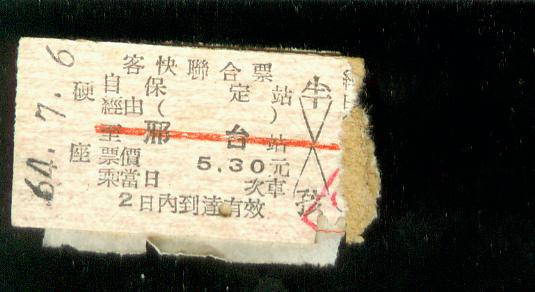 64.7.6
客快聯合票
硬座
自保定站
經由(    )
至邢台站
票價5.30元
乘當日  次車
2日內到達有效
半
孩